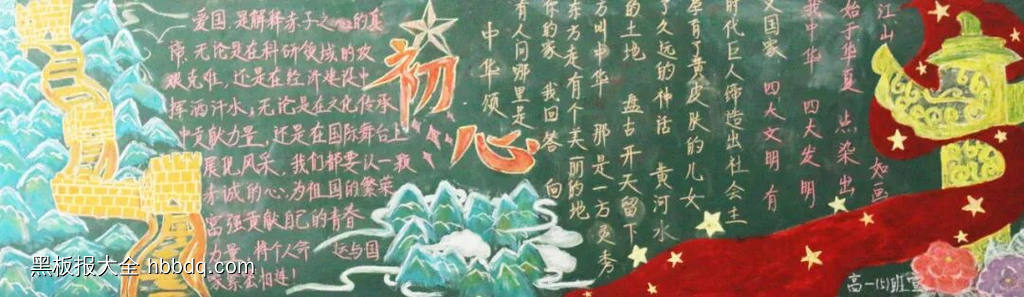 爱国,是解释赤子之心的真
谛.无论是在科研领域的攻
艰克难,还是在经济建设中
挥洒汗水,无论是在文化传承
中贡献力量,还是在国际舞台上
展现风采,我们都要以一颗
赤诚的心,为祖国的繁荣
富强贡献自己的青春
力量,将个人命 运与国
家紧密相连!
初心
中华颂
有人问哪里是
你的家 我回答 向
东方走有个美丽的地
方叫中华 那是一方灵秀
的土地 盘古开天留下
了久远的神话 黄河水
孕育了黄皮肤的儿女
时代巨人缔造出社会主
义国家 四大文明有
我中华 四大发明
始于华夏 点染出
江山 如画
高一(5)班宣
黑板报大全 hbbdq.com